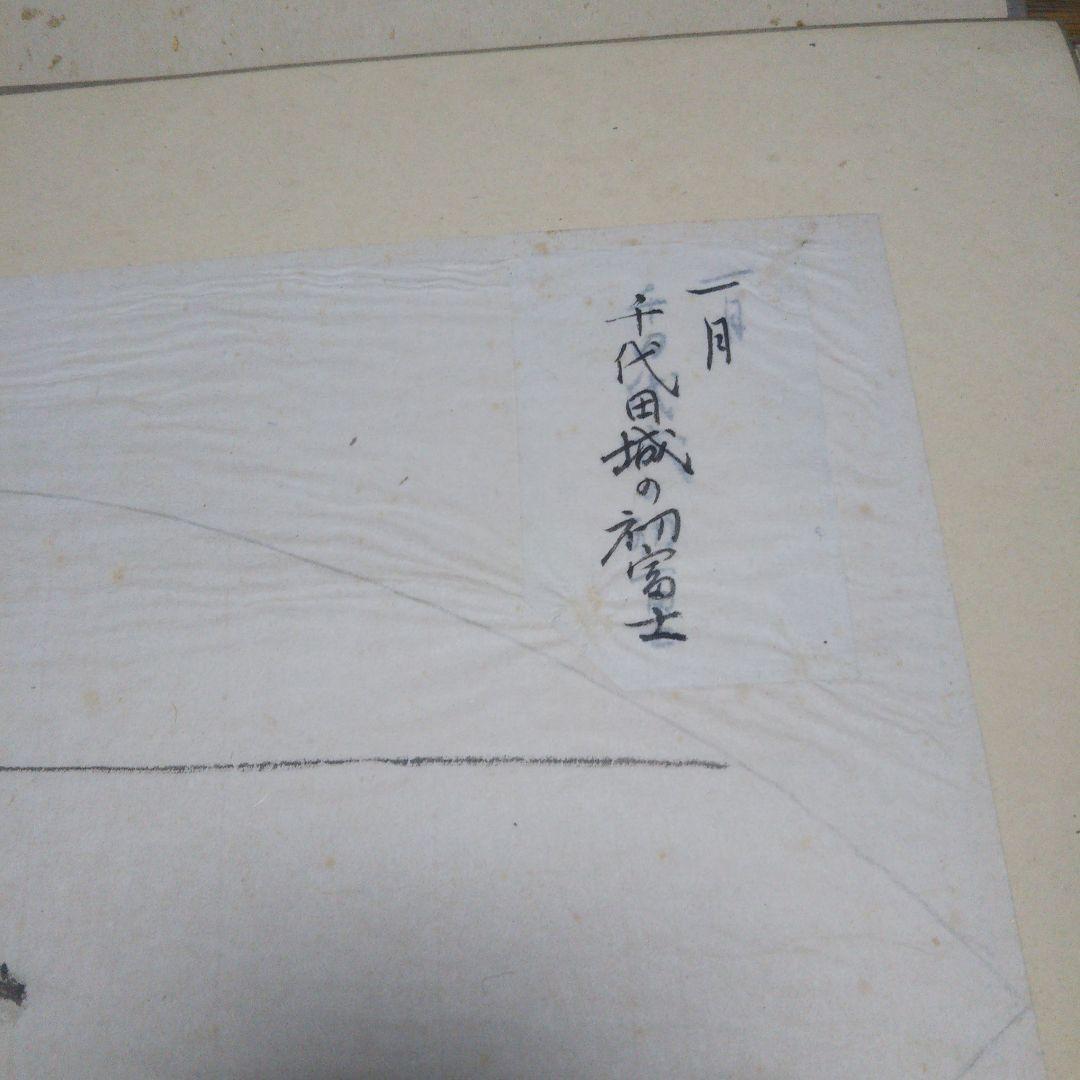 一月
千代田城の初富士